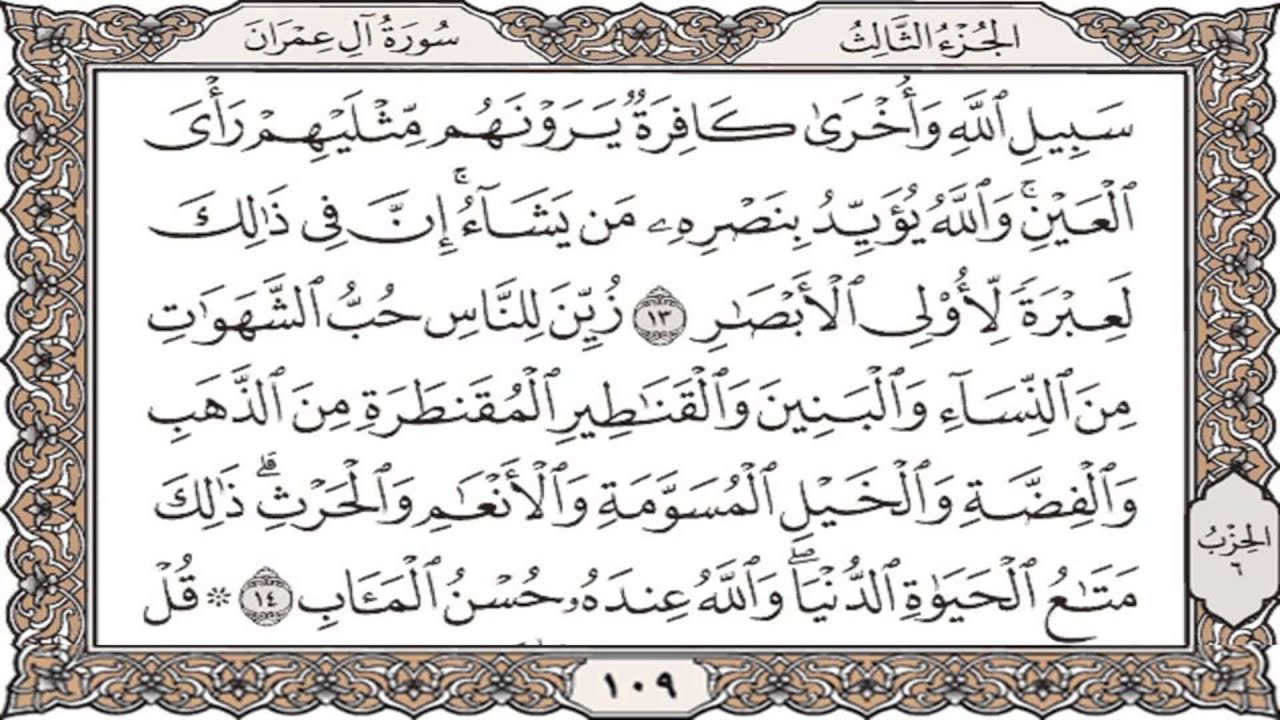 الجُزْءُ الثَّالِثُ
سُورَةُ آلِ عِمْرَانَ
سَبِيلِ ٱللَّهِ وَأُخْرَىٰ كَافِرَةٌ يَرَوْنَهُم مِّثْلَيْهِمْ رَأْىَ
ٱلْعَيْنِ ۚ وَٱللَّهُ يُؤَيِّدُ بِنَصْرِهِۦ مَن يَشَآءُ ۚ إِنَّ فِى ذَٰلِكَ
لَعِبْرَةً لِّأُو۟لِى ٱلْأَبْصَٰرِ ١٣ زُيِّنَ لِلنَّاسِ حُبُّ ٱلشَّهَوَٰتِ
مِنَ ٱلنِّسَآءِ وَٱلْبَنِينَ وَٱلْقَنَٰطِيرِ ٱلْمُقَنطَرَةِ مِنَ ٱلذَّهَبِ
وَٱلْفِضَّةِ وَٱلْخَيْلِ ٱلْمُسَوَّمَةِ وَٱلْأَنْعَٰمِ وَٱلْحَرْثِ ۗ ذَٰلِكَ
مَتَٰعُ ٱلْحَيَوٰةِ ٱلدُّنْيَا ۖ وَٱللَّهُ عِندَهُۥ حُسْنُ ٱلْمَـَٔابِ ١٤ ۞ قُلْ
الحِزْبُ
٦
١٠٩